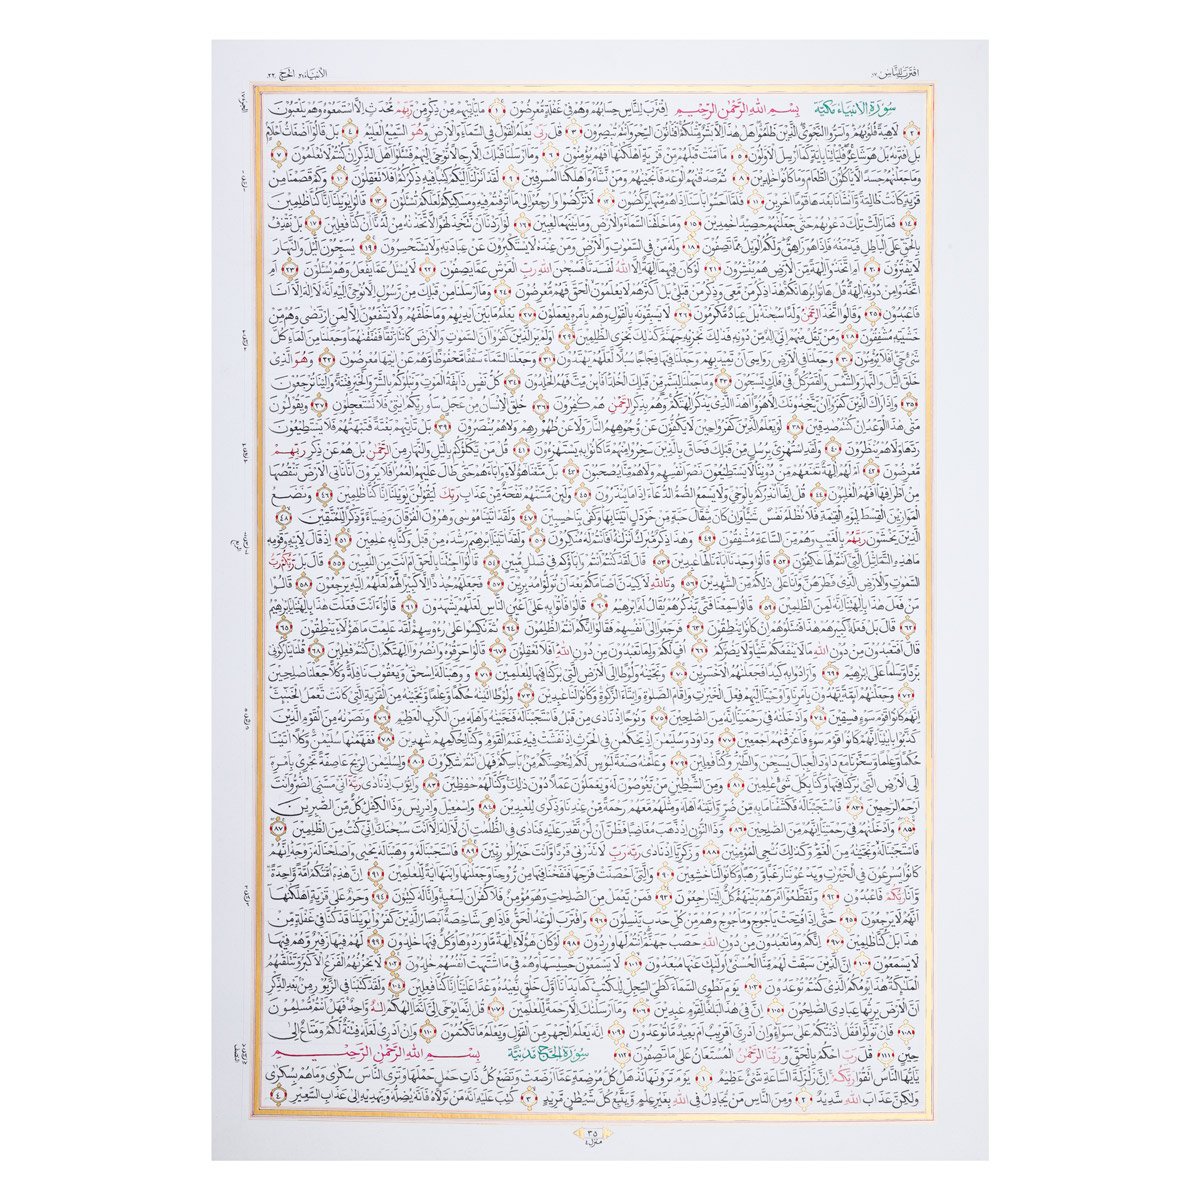 اقترب للناس ١٧
الانبياء ٢١ الحج ٢٢
سورة الانبياء مكية بسم الله الرحمن الرحيم اقترب للناس حسابهم وهم في غفلة معرضون ١ ما ياتيهم من ذكر من ربهم محدث الا استمعوه وهم يلعبون
٢ لاهية قلوبهم واسروا النجوى الذين ظلموا هل هذا الا بشر مثلكم افتاتون السحر وانتم تبصرون ٣ قل ربي يعلم القول في السماء والارض وهو السميع العليم ٤ بل قالوا اضغاث احلام
بل افتره بل هو شاعر فلياتنا باية كما ارسل الاولون ٥ ما امنت قبلهم من قرية اهلكنها افهم يؤمنون ٦ وما ارسلنا قبلك الا رجالا نوحي اليهم فسئلوا اهل الذكر ان كنتم لا تعلمون ٧
وما جعلنهم جسدا لا ياكلون الطعام وما كانوا خلدين ٨ ثم صدقنهم الوعد فانجينهم ومن نشاء واهلكنا المسرفين ٩ لقد انزلنا اليكم كتبا فيه ذكركم افلا تعقلون ١٠ وكم قصمنا من
قرية كانت ظالمة وانشانا بعدها قوما اخرين ١١ فلما احسوا باسنا اذا هم منها يركضون ١٢ لا تركضوا وارجعوا الى ما اترفتم فيه ومسكنكم لعلكم تسئلون ١٣ قالوا يويلنا انا كنا ظلمين
١٤ فما زالت تلك دعوىهم حتى جعلنهم حصيدا خمدين ١٥ وما خلقنا السماء والارض وما بينهما لعبين ١٦ لو اردنا ان نتخذ لهوا لاتخذنه من لدنا ان كنا فعلين ١٧ بل نقذف
بالحق على الباطل فيدمغه فاذا هو زاهق ولكم الويل مما تصفون ١٨ وله من في السموت والارض ومن عنده لا يستكبرون عن عبادته ولا يستحسرون ١٩ يسبحون اليل والنهار
لا يفترون ٢٠ ام اتخذوا الهة من الارض هم ينشرون ٢١ لو كان فيهما الهة الا الله لفسدتا فسبحن الله رب العرش عما يصفون ٢٢ لا يسئل عما يفعل وهم يسئلون ٢٣ ام
اتخذوا من دونه الهة قل هاتوا برهانكم هذا ذكر من معي وذكر من قبلي بل اكثرهم لا يعلمون الحق فهم معرضون ٢٤ وما ارسلنا من قبلك من رسول الا نوحي اليه انه لا اله الا انا
فاعبدون ٢٥ وقالوا اتخذ الرحمن ولدا سبحنه بل عباد مكرمون ٢٦ لا يسبقونه بالقول وهم بامره يعملون ٢٧ يعلم ما بين ايديهم وما خلفهم ولا يشفعون الا لمن ارتضى وهم من
خشيته مشفقون ٢٨ ومن يقل منهم اني اله من دونه فذلك نجزيه جهنم كذلك نجزي الظلمين ٢٩ اولم ير الذين كفروا ان السموت والارض كانتا رتقا ففتقنهما وجعلنا من الماء كل
شيء حي افلا يؤمنون ٣٠ وجعلنا في الارض رواسي ان تميد بهم وجعلنا فيها فجاجا سبلا لعلهم يهتدون ٣١ وجعلنا السماء سقفا محفوظا وهم عن ايتها معرضون ٣٢ وهو الذي
خلق اليل والنهار والشمس والقمر كل في فلك يسبحون ٣٣ وما جعلنا لبشر من قبلك الخلد افائن مت فهم الخلدون ٣٤ كل نفس ذائقة الموت ونبلوكم بالشر والخير فتنة والينا ترجعون
٣٥ واذا راك الذين كفروا ان يتخذونك الا هزوا اهذا الذي يذكر الهتكم وهم بذكر الرحمن هم كفرون ٣٦ خلق الانسان من عجل ساوريكم ايتي فلا تستعجلون ٣٧ ويقولون
متى هذا الوعد ان كنتم صدقين ٣٨ لو يعلم الذين كفروا حين لا يكفون عن وجوههم النار ولا عن ظهورهم ولا هم ينصرون ٣٩ بل تاتيهم بغتة فتبهتهم فلا يستطيعون
ردها ولا هم ينظرون ٤٠ ولقد استهزئ برسل من قبلك فحاق بالذين سخروا منهم ما كانوا به يستهزءون ٤١ قل من يكلؤكم باليل والنهار من الرحمن بل هم عن ذكر ربهم
معرضون ٤٢ ام لهم الهة تمنعهم من دوننا لا يستطيعون نصر انفسهم ولا هم منا يصحبون ٤٣ بل متعنا هؤلاء واباءهم حتى طال عليهم العمر افلا يرون انا ناتي الارض ننقصها
من اطرافها افهم الغلبون ٤٤ قل انما انذركم بالوحي ولا يسمع الصم الدعاء اذا ما ينذرون ٤٥ ولئن مستهم نفحة من عذاب ربك ليقولن يويلنا انا كنا ظلمين ٤٦ ونضع
الموازين القسط ليوم القيمة فلا تظلم نفس شيئا وان كان مثقال حبة من خردل اتينا بها وكفى بنا حسبين ٤٧ ولقد اتينا موسى وهرون الفرقان وضياء وذكرا للمتقين ٤٨
الذين يخشون ربهم بالغيب وهم من الساعة مشفقون ٤٩ وهذا ذكر مبرك انزلنه افانتم له منكرون ٥٠ ولقد اتينا ابرهيم رشده من قبل وكنا به علمين ٥١ اذ قال لابيه وقومه
ما هذه التماثيل التي انتم لها عكفون ٥٢ قالوا وجدنا اباءنا لها عبدين ٥٣ قال لقد كنتم انتم واباؤكم في ضلل مبين ٥٤ قالوا اجئتنا بالحق ام انت من اللعبين ٥٥ قال بل ربكم رب
السموت والارض الذي فطرهن وانا على ذلكم من الشهدين ٥٦ وتالله لاكيدن اصنامكم بعد ان تولوا مدبرين ٥٧ فجعلهم جذذا الا كبيرا لهم لعلهم اليه يرجعون ٥٨ قالوا
من فعل هذا بالهتنا انه لمن الظلمين ٥٩ قالوا سمعنا فتى يذكرهم يقال له ابرهيم ٦٠ قالوا فاتوا به على اعين الناس لعلهم يشهدون ٦١ قالوا ءانت فعلت هذا بالهتنا يابرهيم
٦٢ قال بل فعله كبيرهم هذا فسئلوهم ان كانوا ينطقون ٦٣ فرجعوا الى انفسهم فقالوا انكم انتم الظلمون ٦٤ ثم نكسوا على رءوسهم لقد علمت ما هؤلاء ينطقون ٦٥
قال افتعبدون من دون الله ما لا ينفعكم شيئا ولا يضركم ٦٦ اف لكم ولما تعبدون من دون الله افلا تعقلون ٦٧ قالوا حرقوه وانصروا الهتكم ان كنتم فعلين ٦٨ قلنا ينار كوني
بردا وسلما على ابرهيم ٦٩ وارادوا به كيدا فجعلنهم الاخسرين ٧٠ ونجينه ولوطا الى الارض التي بركنا فيها للعلمين ٧١ ووهبنا له اسحق ويعقوب نافلة وكلا جعلنا صلحين
٧٢ وجعلنهم ائمة يهدون بامرنا واوحينا اليهم فعل الخيرت واقام الصلوة وايتاء الزكوة وكانوا لنا عبدين ٧٣ ولوطا اتينه حكما وعلما ونجينه من القرية التي كانت تعمل الخبئث
انهم كانوا قوم سوء فسقين ٧٤ وادخلنه في رحمتنا انه من الصلحين ٧٥ ونوحا اذ نادى من قبل فاستجبنا له فنجينه واهله من الكرب العظيم ٧٦ ونصرنه من القوم الذين
كذبوا بايتنا انهم كانوا قوم سوء فاغرقنهم اجمعين ٧٧ وداود وسليمن اذ يحكمن في الحرث اذ نفشت فيه غنم القوم وكنا لحكمهم شهدين ٧٨ ففهمنها سليمن وكلا اتينا
حكما وعلما وسخرنا مع داود الجبال يسبحن والطير وكنا فعلين ٧٩ وعلمنه صنعة لبوس لكم لتحصنكم من باسكم فهل انتم شكرون ٨٠ ولسليمن الريح عاصفة تجري بامره
الى الارض التي بركنا فيها وكنا بكل شيء علمين ٨١ ومن الشيطين من يغوصون له ويعملون عملا دون ذلك وكنا لهم حفظين ٨٢ وايوب اذ نادى ربه اني مسني الضر وانت
ارحم الرحمين ٨٣ فاستجبنا له فكشفنا ما به من ضر واتينه اهله ومثلهم معهم رحمة من عندنا وذكرى للعبدين ٨٤ واسمعيل وادريس وذا الكفل كل من الصبرين
٨٥ وادخلنهم في رحمتنا انهم من الصلحين ٨٦ وذا النون اذ ذهب مغاضبا فظن ان لن نقدر عليه فنادى في الظلمت ان لا اله الا انت سبحنك اني كنت من الظلمين ٨٧
فاستجبنا له ونجينه من الغم وكذلك ننجي المؤمنين ٨٨ وزكريا اذ نادى ربه رب لا تذرني فردا وانت خير الورثين ٨٩ فاستجبنا له ووهبنا له يحيى واصلحنا له زوجه انهم
كانوا يسرعون في الخيرت ويدعوننا رغبا ورهبا وكانوا لنا خشعين ٩٠ والتي احصنت فرجها فنفخنا فيها من روحنا وجعلنها وابنها اية للعلمين ٩١ ان هذه امتكم امة وحدة
وانا ربكم فاعبدون ٩٢ وتقطعوا امرهم بينهم كل الينا رجعون ٩٣ فمن يعمل من الصلحت وهو مؤمن فلا كفران لسعيه وانا له كتبون ٩٤ وحرم على قرية اهلكنها
انهم لا يرجعون ٩٥ حتى اذا فتحت ياجوج وماجوج وهم من كل حدب ينسلون ٩٦ واقترب الوعد الحق فاذا هي شاخصة ابصار الذين كفروا يويلنا قد كنا في غفلة من
هذا بل كنا ظلمين ٩٧ انكم وما تعبدون من دون الله حصب جهنم انتم لها وردون ٩٨ لو كان هؤلاء الهة ما وردوها وكل فيها خلدون ٩٩ لهم فيها زفير وهم فيها
لا يسمعون ١٠٠ ان الذين سبقت لهم منا الحسنى اولئك عنها مبعدون ١٠١ لا يسمعون حسيسها وهم في ما اشتهت انفسهم خلدون ١٠٢ لا يحزنهم الفزع الاكبر وتتلقىهم
الملئكة هذا يومكم الذي كنتم توعدون ١٠٣ يوم نطوي السماء كطي السجل للكتب كما بدانا اول خلق نعيده وعدا علينا انا كنا فعلين ١٠٤ ولقد كتبنا في الزبور من بعد الذكر
ان الارض يرثها عبادي الصلحون ١٠٥ ان في هذا لبلغا لقوم عبدين ١٠٦ وما ارسلنك الا رحمة للعلمين ١٠٧ قل انما يوحى الي انما الهكم اله واحد فهل انتم مسلمون
١٠٨ فان تولوا فقل اذنتكم على سواء وان ادري اقريب ام بعيد ما توعدون ١٠٩ انه يعلم الجهر من القول ويعلم ما تكتمون ١١٠ وان ادري لعله فتنة لكم ومتاع الى
حين ١١١ قل رب احكم بالحق وربنا الرحمن المستعان على ما تصفون ١١٢ سورة الحج مدنية بسم الله الرحمن الرحيم
يايها الناس اتقوا ربكم ان زلزلة الساعة شيء عظيم ١ يوم ترونها تذهل كل مرضعة عما ارضعت وتضع كل ذات حمل حملها وترى الناس سكرى وما هم بسكرى
ولكن عذاب الله شديد ٢ ومن الناس من يجادل في الله بغير علم ويتبع كل شيطن مريد ٣ كتب عليه انه من تولاه فانه يضله ويهديه الى عذاب السعير ٤
٣٥
منزل ٤